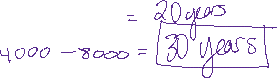 = 20 years
4000 - 8000 = 30 years